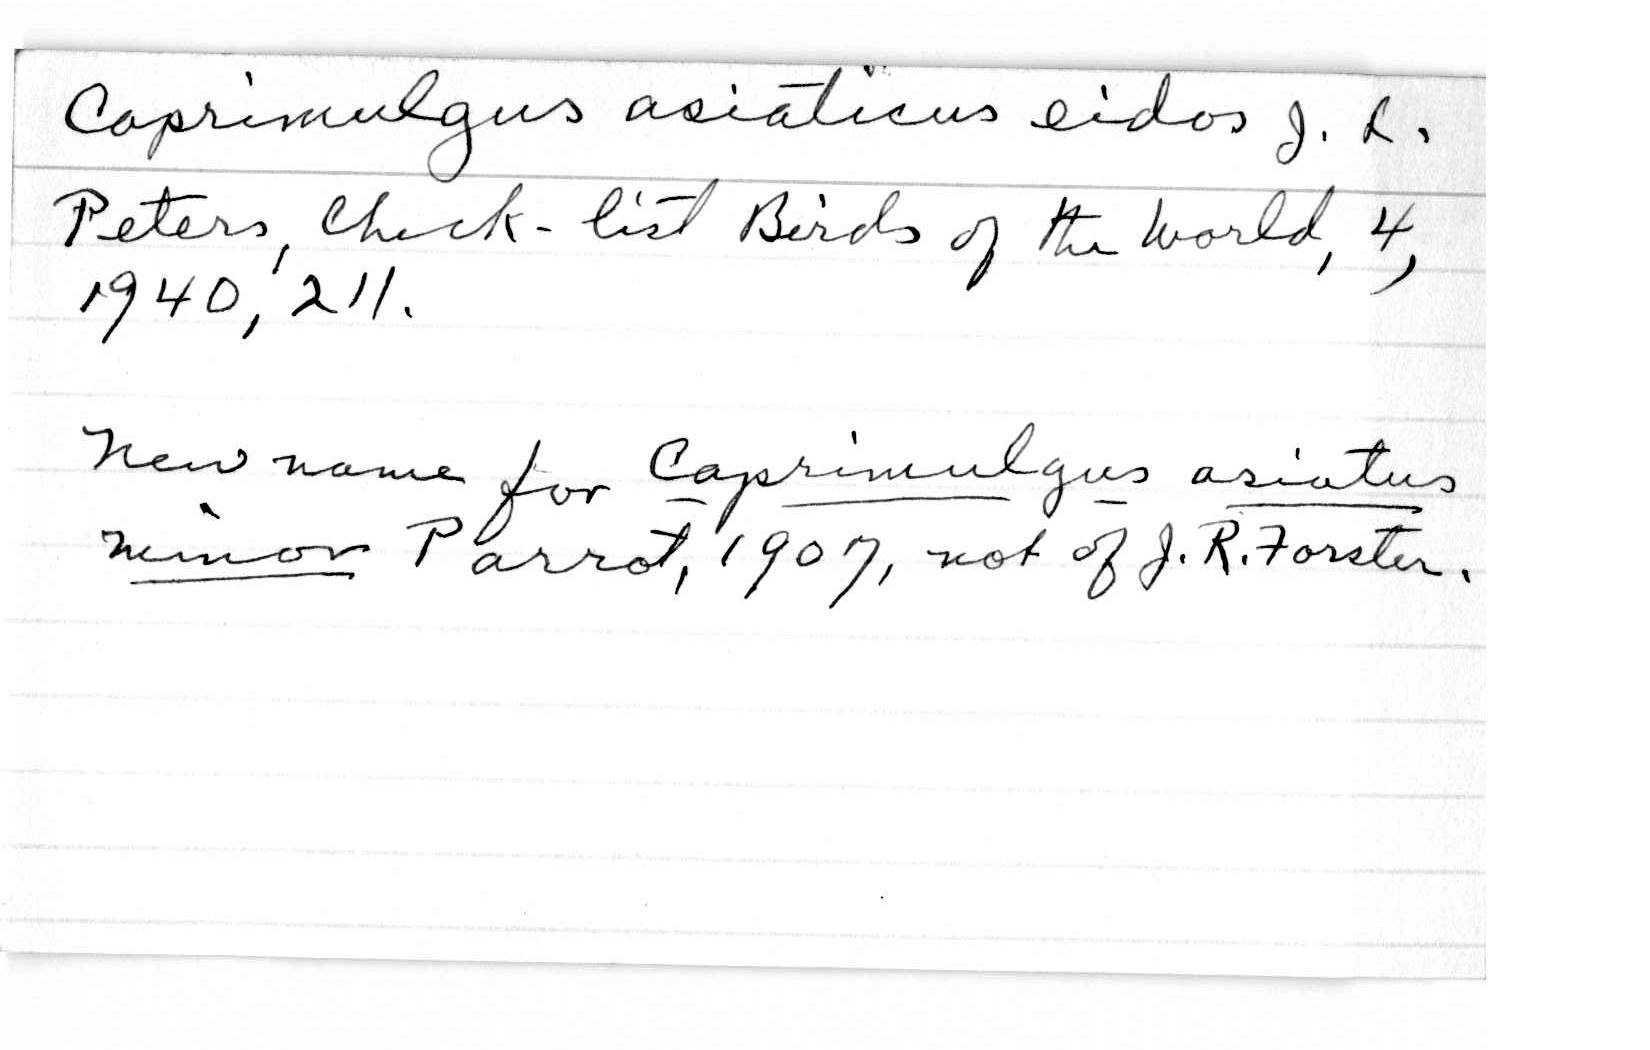 Caprimulgus asiaticus eidos J. L.
Peters, Check-list Birds of the World, 4,
1940, 211.
New name for Caprimulgus asiatus
minor Parrot, 1907, not of J. R. Forster.